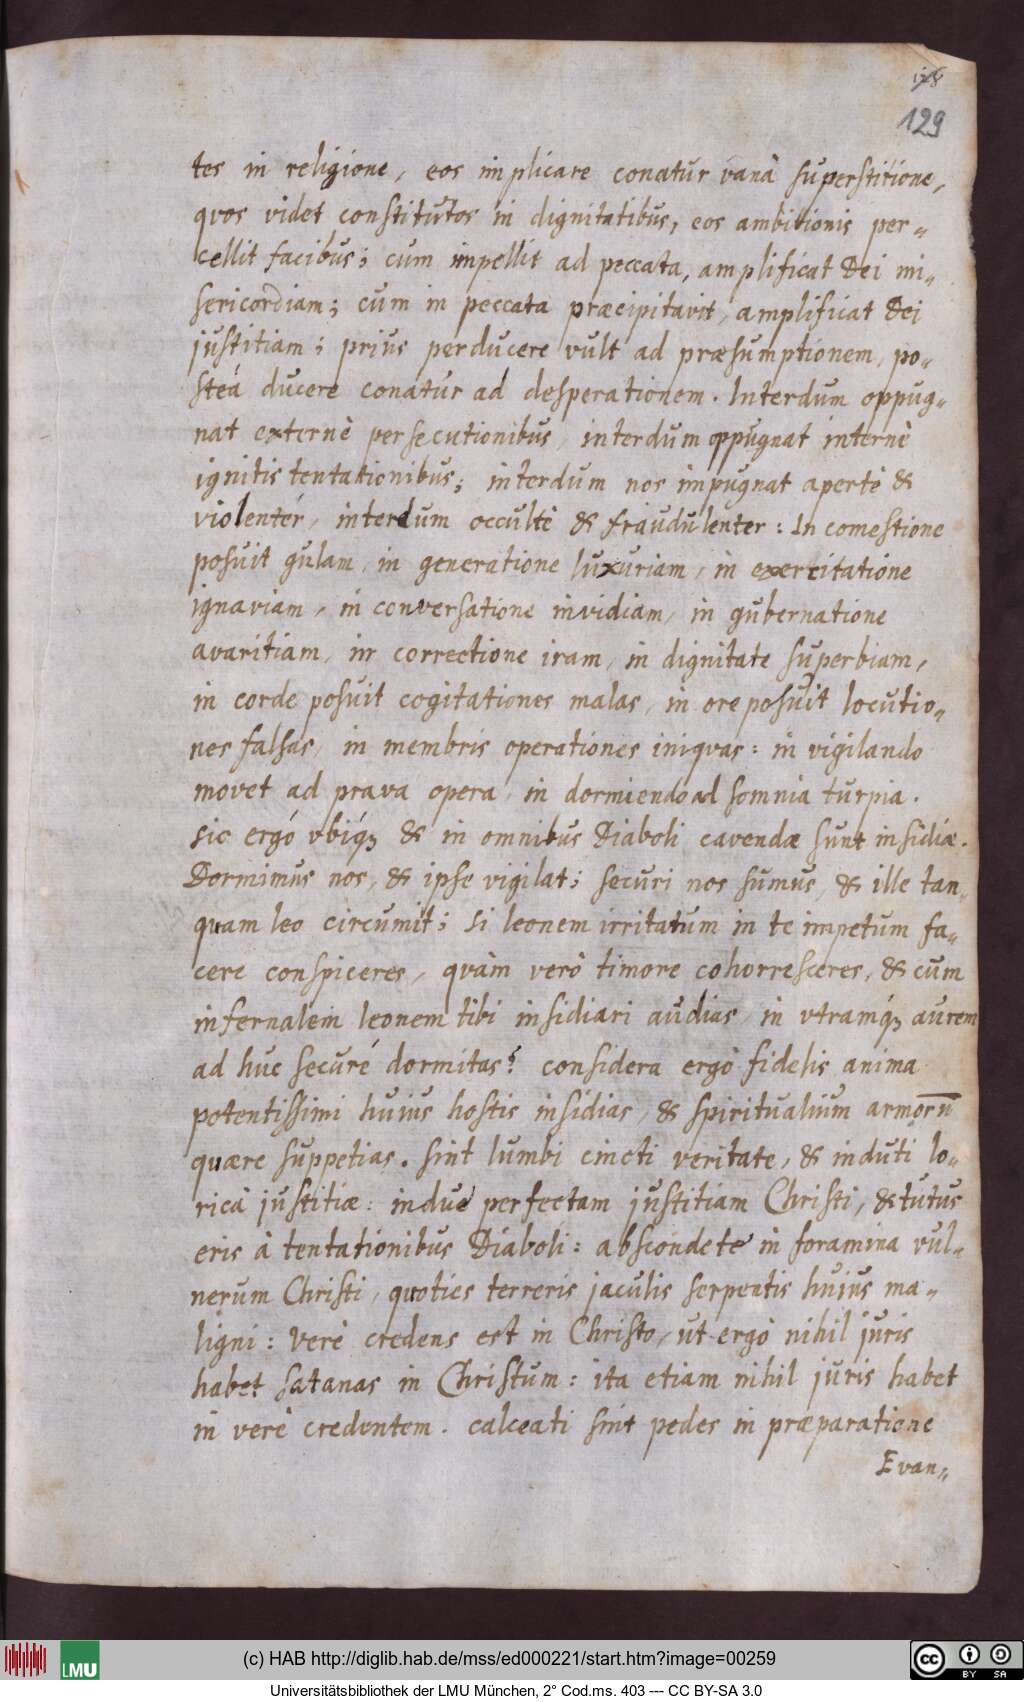 128
129
tes in religione, eos implicare conatur vanà superstitione,
qvos videt constitutos in dignitatibus, eos ambitionis per„
cellit facibus; cum impellit ad peccata, amplificat Dei mi„
sericordiam; cum in peccata præcipitavit, amplificat Dei
justitiam; prius perducere vult ad præsumptionem, po„
steá ducere conatur ad desperationem. Interdum oppug„
nat externè persecutionibus, interdum oppugnat internè
ignitis tentationibus; interdum nos impugnat apertè &
violentér, interdum occultè & fraudulenter: In comestione
posuit gulam, in generatione luxuriam, in exercitatione
ignaviam, in conversatione invidiam, in gubernatione
avaritiam, in correctione iram, in dignitate superbiam,
in corde posuit cogitationes malas, in ore posuit locutio„
nes falsas, in membris operationes iniqvas: in vigilando
movet ad prava opera, in dormiendo ad somnia turpia.
sic ergó vbiq́ꝫ & in omnibus Diaboli cavendæ sunt insidiæ.
Dormimus nos, & ipse vigilat; securi nos sumus, & ille tan„
quam leo circumit; si leonem irritatum in te impetum fa„
cere conspiceres, qvàm verò timore cohorresceres, & cum
infernalem leonem tibi insidiari audias, in vtramq́ꝫ aurem
ad huc securé dormitas? considera ergò fidelis anima
potentissimi huius hostis insidias, & spiritualium armorū
quære suppetias. sint lumbi cincti veritate, & induti lo„
ricà justitiæ: indue perfectam justitiam Christi, & tutus
eris à tentationibus Diaboli: absconde te in foramina vul„
nerum Christi, quoties terreris jaculis serpentis huius ma„
ligni: verè credens est in Christo, ut ergò nihil juris
habet satanas in Christum: ita etiam nihil juris habet
in verè credentem. calceati sint pedes in præparatione
Evan„
LMU
(c) HAB http://diglib.hab.de/mss/ed000221/start.htm?image=00259
cc BY SA
Universitätsbibliothek der LMU München, 2° Cod.ms. 403 --- CC BY-SA 3.0